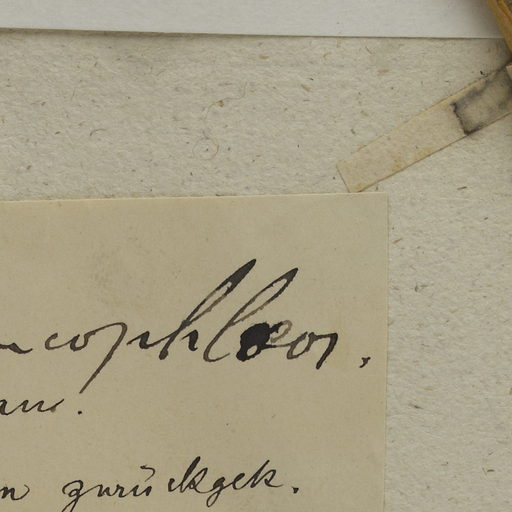 ncophlœos,
am.
n zurückgek.